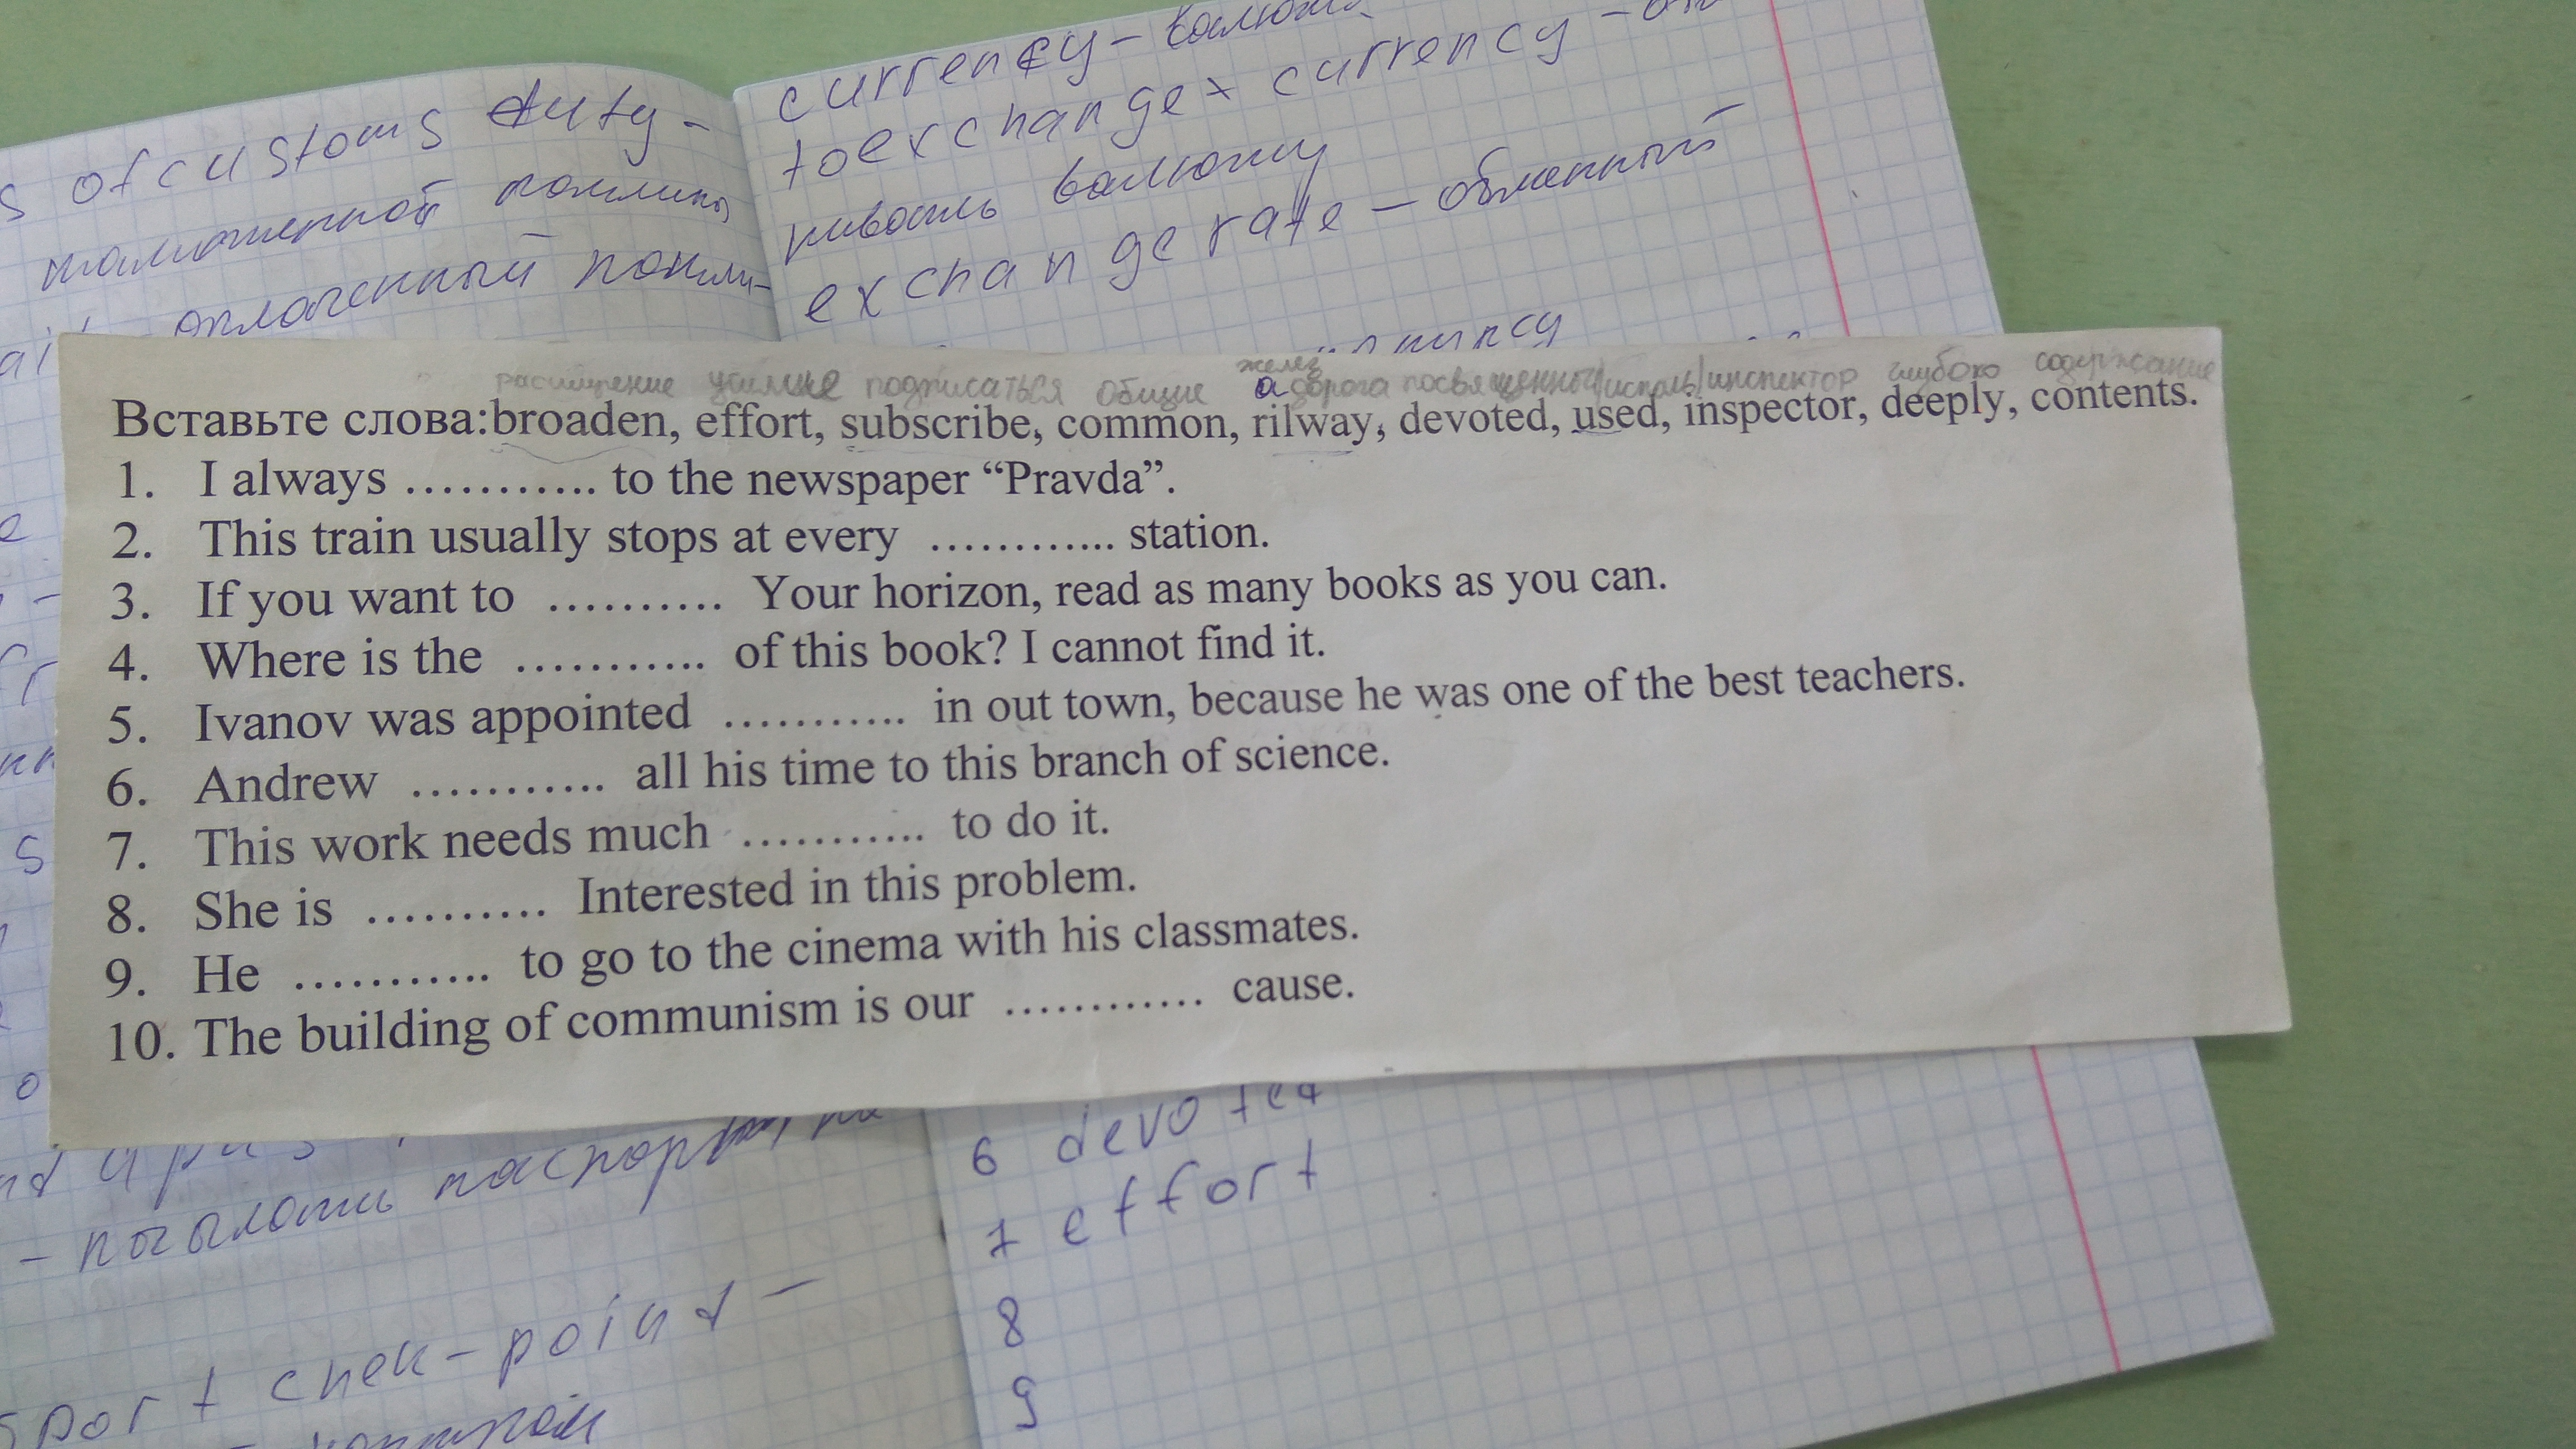 s of customs duty -
таможенной пошлины
оплаченный пошли-
currency - валюта
to exchange currency -
нивать валюту
exchange rate - обменный
расширение усилие подписаться общие желез дорога посвященный исполь инспектор глубоко содержание
а
Вставьте слова:broaden, effort, subscribe, common, rilway, devoted, used, inspector, deeply, contents.
1. I always ........... to the newspaper “Pravda”.
2. This train usually stops at every ............ station.
3. If you want to .......... Your horizon, read as many books as you can.
4. Where is the ........... of this book? I cannot find it.
5. Ivanov was appointed ........... in out town, because he was one of the best teachers.
6. Andrew ........... all his time to this branch of science.
7. This work needs much ........... to do it.
8. She is .......... Interested in this problem.
9. He ........... to go to the cinema with his classmates.
10. The building of communism is our ............ cause.
6 devoted
7 effort
8
9
sport chek-point -